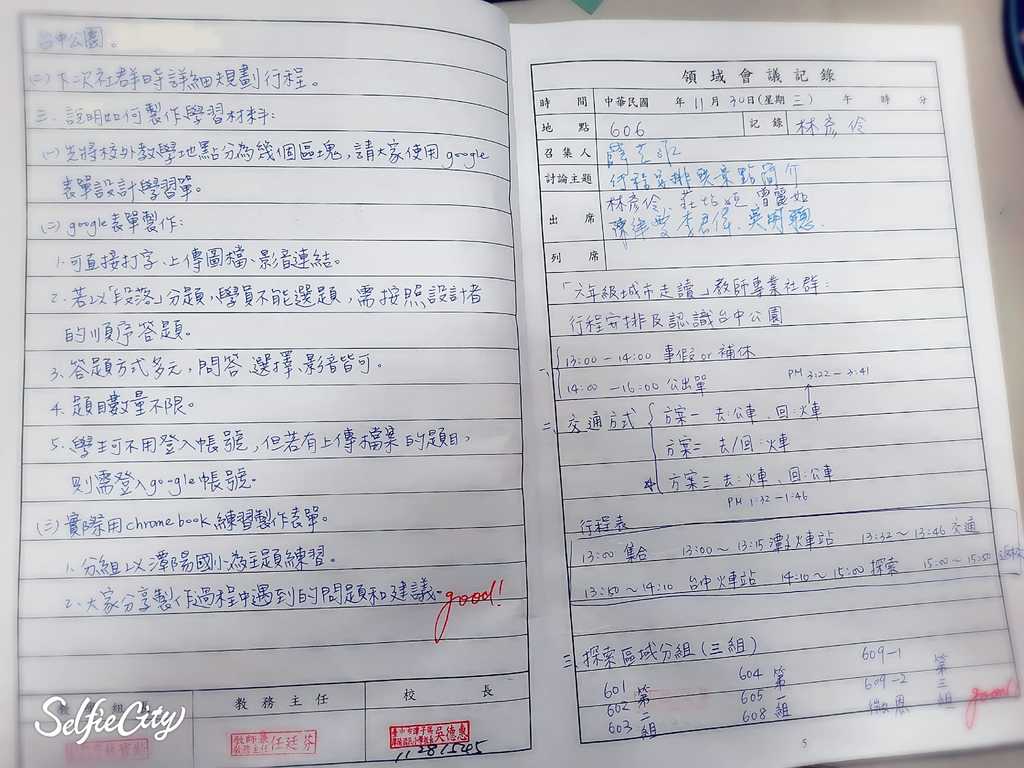 台中公園。
(二)下次社群時詳細規劃行程。
三、說明如何製作學習材料:
(一)先將校外教學地點分為幾個區塊,請大家使用google
表單設計學習單。
(二)google表單製作:
1.可直接打字、上傳圖檔、影音連結。
2.若以「段落」分題,學員不能選題,需按照設計者
的順序答題。
3.答題方式多元,問答、選擇、影音皆可。
4.題目數量不限。
5.學生可不用登入帳號,但若有上傳檔案的題目,
則需登入google帳號。
(三)實際用chromebook練習製作表單。
1.分組以潭陽國小為主題練習。
2.大家分享製作過程中遇到的問題和建議。
good!
教務主任
校長
教師兼教務主任 任廷芬
吳德惠
SelfieCity
領域會議記錄
時間 中華民國 年11月30日(星期三) 午 時 分
地點 606 記錄 林彥伶
召集人
討論主題 行程安排及景點簡介
出席 林彥伶、莊 曾麗如
李君偉、吳明聰
列席
「六年級城市走讀」教師專業社群:
行程安排及認識台中公園
一、13:00-14:00 事假or補休
14:00-16:00 公出單 PM 3:22-3:41
二、交通方式 方案一 去:公車、回:火車
方案二 去/回:火車
方案三 去:火車、回:公車
PM 1:32-1:46
行程表
13:00 集合 13:00~13:15 潭子火車站 13:32~13:46 交通
13:50~14:10 台中火車站 14:10~15:00 探索 15:00~15:50
三、探索區域分組(三組)
601 602 603 第二組
604 605 608 第一組
609-1 609-2 第三組
good!
5